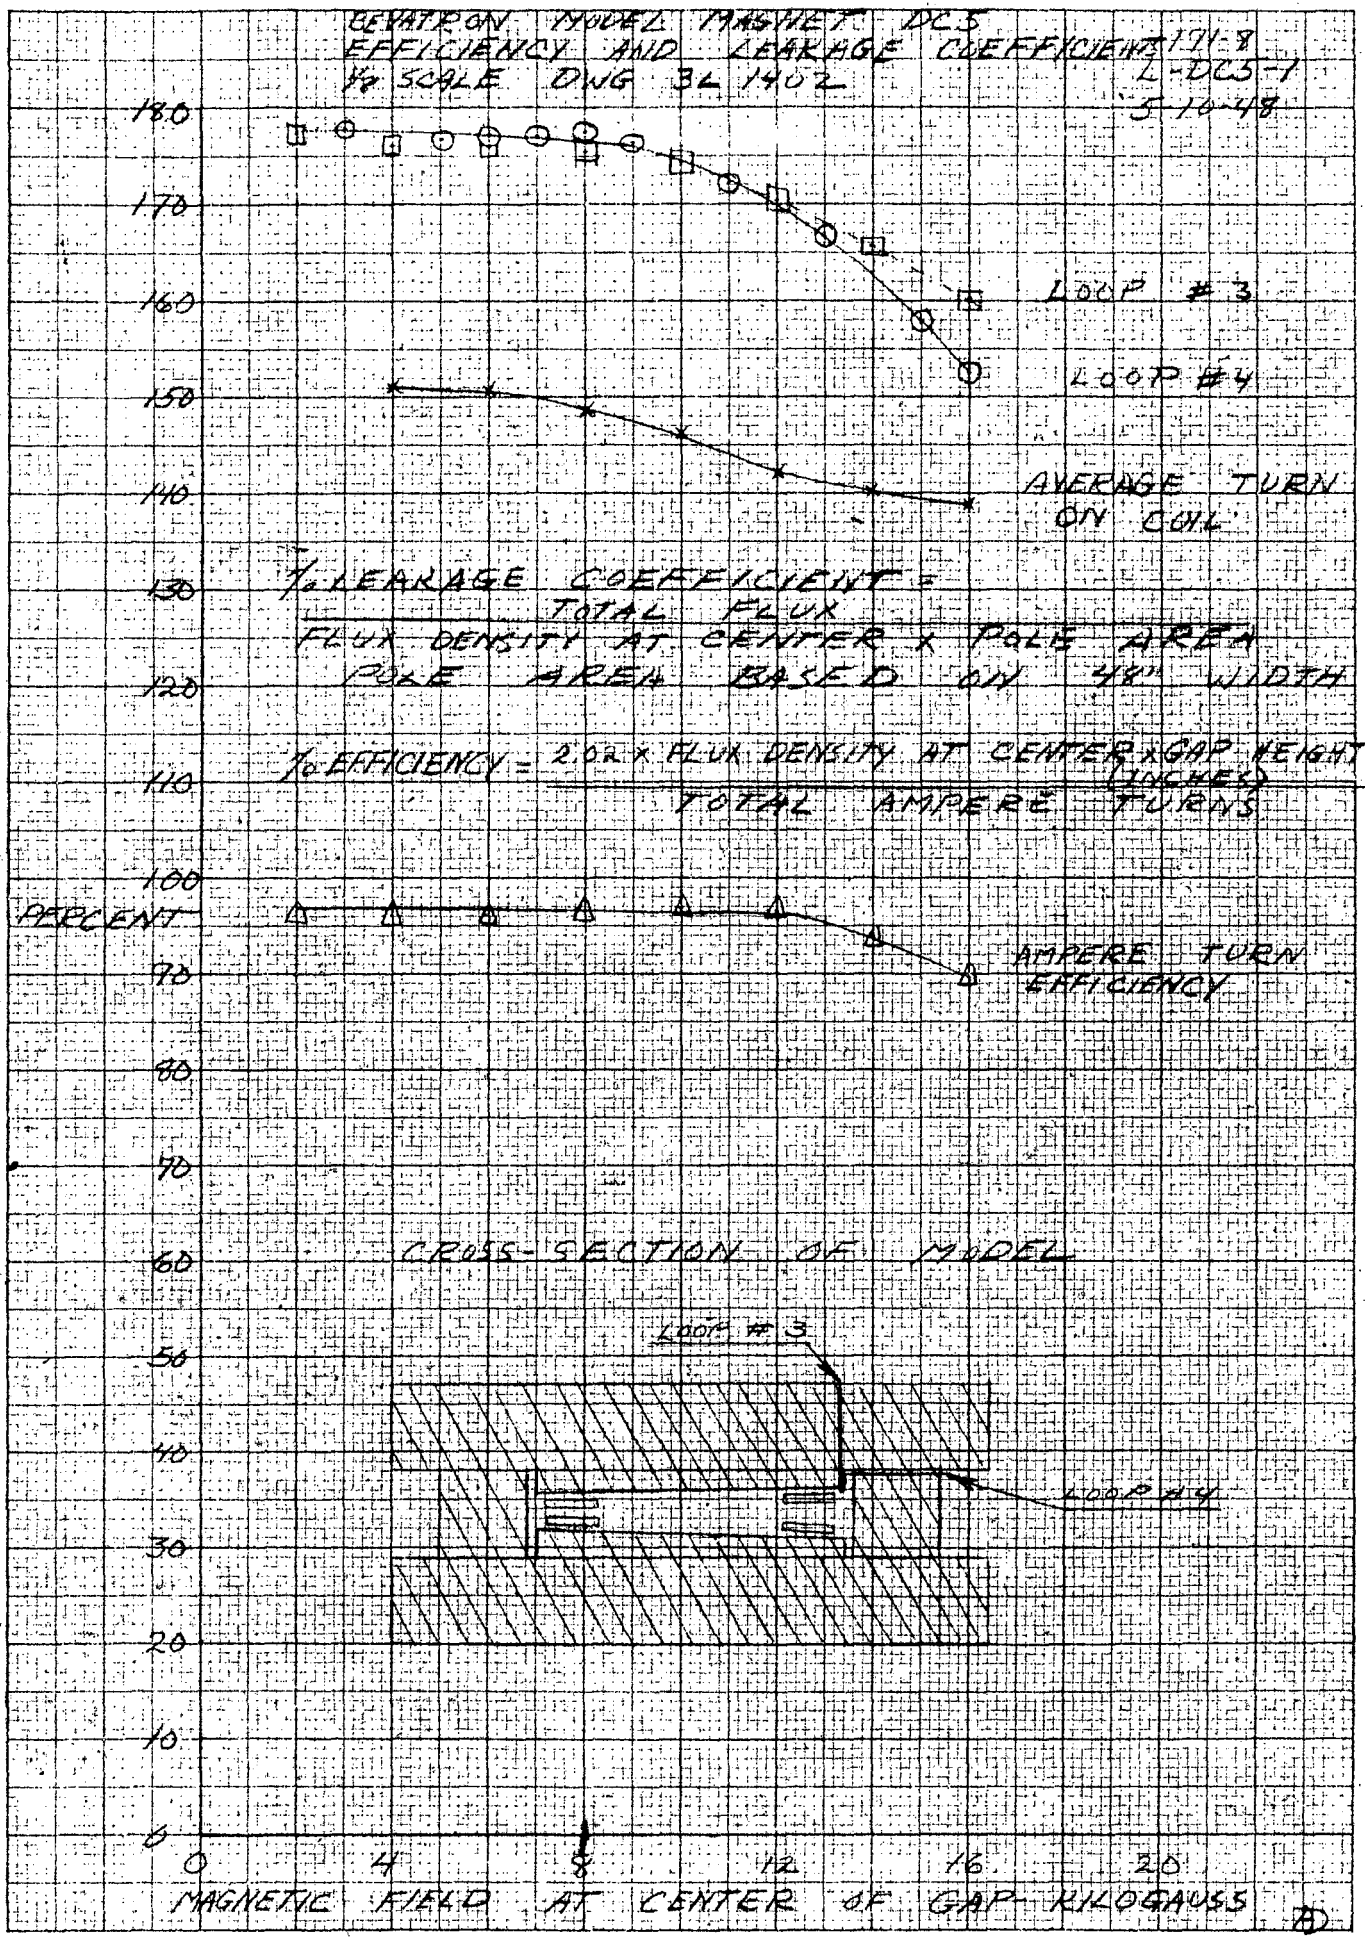 BEVATRON MODEL MAGNET DC5
EFFICIENCY AND LEAKAGE COEFFICIENTS
171-8
SCALE DWG 3L 1402
L-DC5-1
5-10-48
180
170
160
150
140
130
120
110
100
90
80
70
60
50
40
30
20
10
0
PERCENT
LOOP # 3
LOOP # 4
AVERAGE TURN
ON COIL
% LEAKAGE COEFFICIENT =
TOTAL FLUX
FLUX DENSITY AT CENTER X POLE AREA
POLE AREA BASED ON 48" WIDTH
% EFFICIENCY = 2.02 X FLUX DENSITY AT CENTER X GAP HEIGHT
(INCHES)
TOTAL AMPERE TURNS
AMPERE TURN
EFFICIENCY
CROSS-SECTION OF MODEL
LOOP # 3
LOOP # 4
0 4 8 12 16 20
MAGNETIC FIELD AT CENTER OF GAP - KILOGAUSS